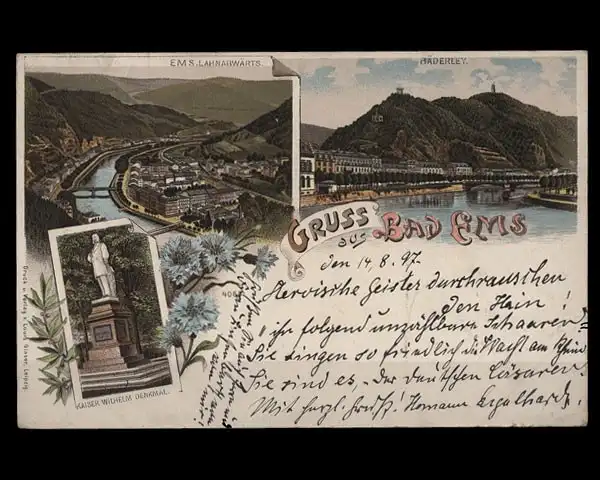 EMS, LAHNABWÄRTS.
BÄDERLEY.
GRUSS aus BAD EMS
den 14.8.97.
Heroische Geister durchrauschen
den Hain!
"ihr folgend unzählbare Schaaren"
Sie singen so friedlich die Wacht am Rhein
Sie sind es, "Der deutschen Cäsaren.
Mit herzl. Gruß! Hermann
406
KAISER WILHELM DENKMAL.
Druck u. Verlag v. Louis Glaser, Leipzig.